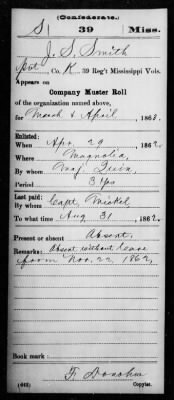 (Confederate.)
S 39 Miss.
J. S. Smith
Pvt, Co. K, 39 Reg't Mississippi Vols.
Appears on
Company Muster Roll
of the organization named above,
for March & April, 1863.
Enlisted:
When Apr. 29, 1862.
Where Magnolia,
By whom Maj. Quin
Period 3 Yrs
Last paid:
By whom Capt.
To what time Aug 31, 1862.
Present or absent Absent.
Remarks: Absent without leave
from Nov. 22 1862.
Book mark:
F. Donohu
(642) Copyist.